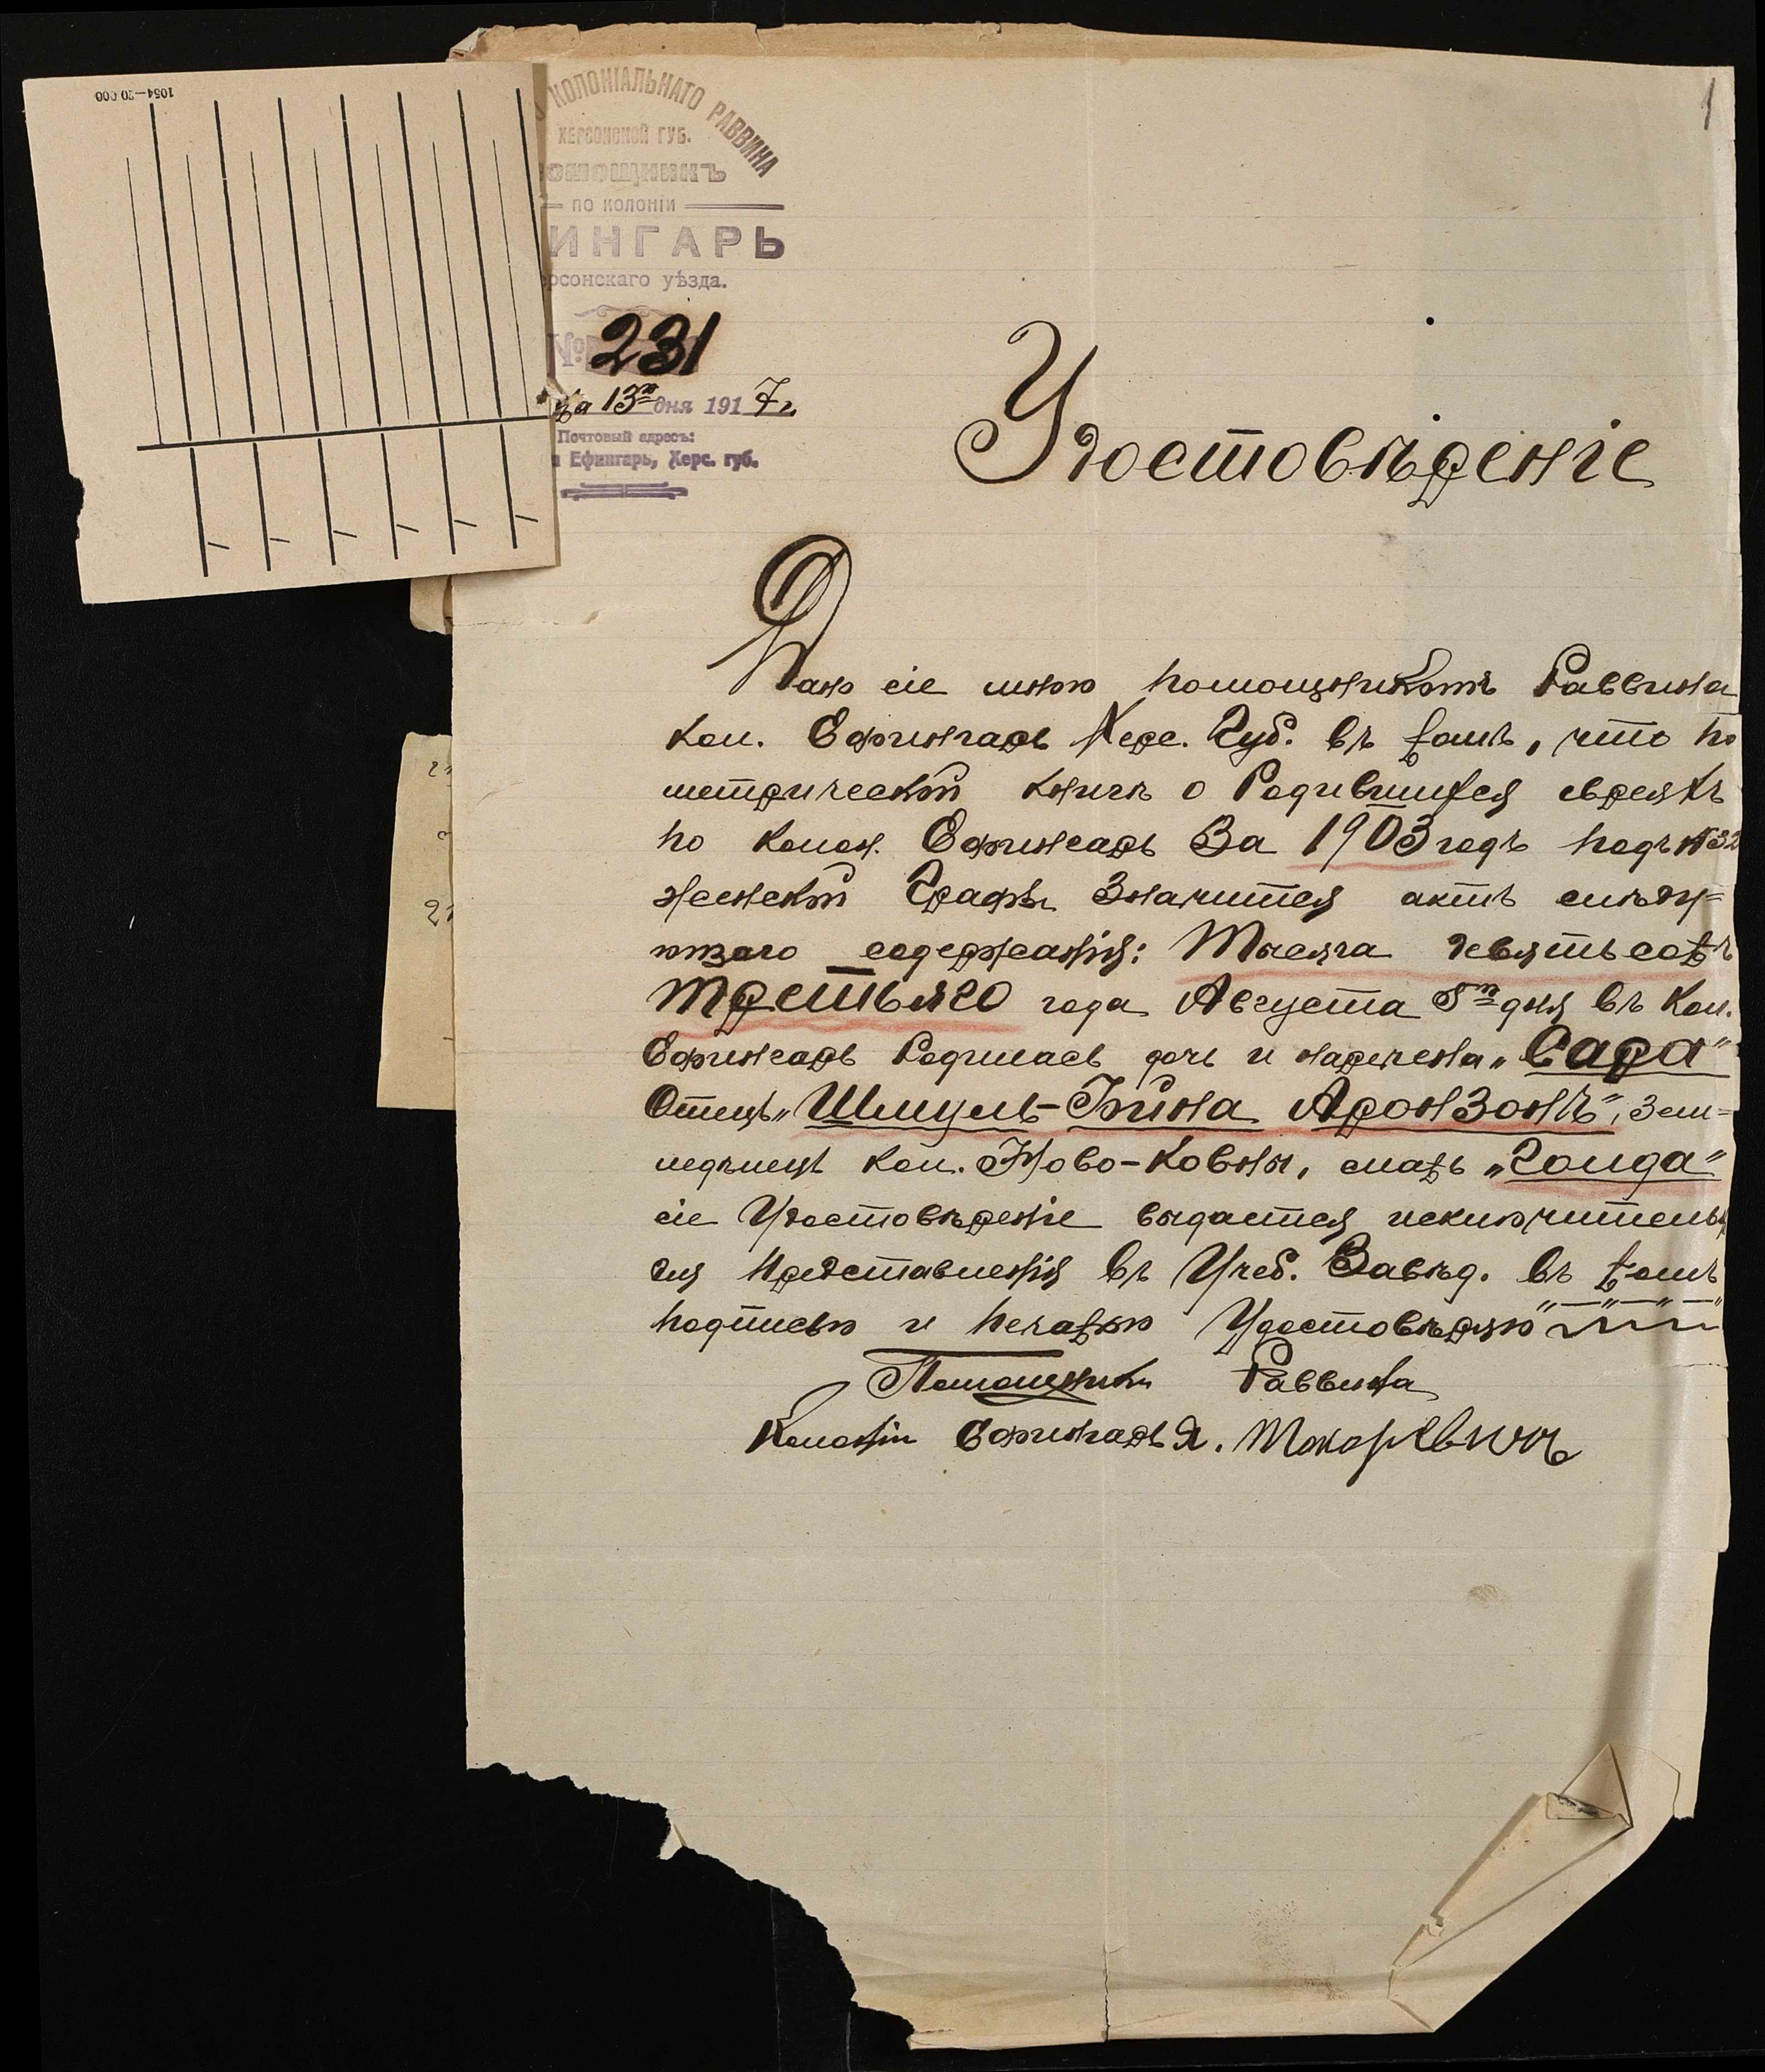 1054—20 000
1
КОЛОНІАЛЬНАГО РАВВИНА
ХЕРСОНСКОЙ ГУБ.
ОМОЩНИКЪ
ПО КОЛОНІИ
ИНГАРЬ
рсонскаго уѣзда.
№ 231
ца 13го дня 1917 г.
Почтовый адресъ:
Ефингарь, Херс. губ.
Удостовѣреніе
Дано сіе мною помощникомъ Раввина
Кол. Ефингарь Херс. Губ. въ томъ, что по
метрической книгѣ о Родившихся евреяхъ
по колон. Ефингарь За 1903 годъ подъ №32
женской Графы Значится актъ слѣду=
ющаго содержанія: Тысяча девятьсотъ
Третьяго года Августа 8го дня въ Кол.
Ефингарь Родилась дочь и наречена „Сара"
Отецъ „Шмуль-Фина Аронзонъ", Зем=
ледѣлецъ кол. Ново-Ковны, мать „Голда"
сіе Удостовѣреніе выдается исключительн
для Представленія въ Учеб. Завѣд. въ томъ
подписью и печатью Удостовѣряю
Помощникъ Раввина
Колоніи Ефингарь Я. Макаревичъ